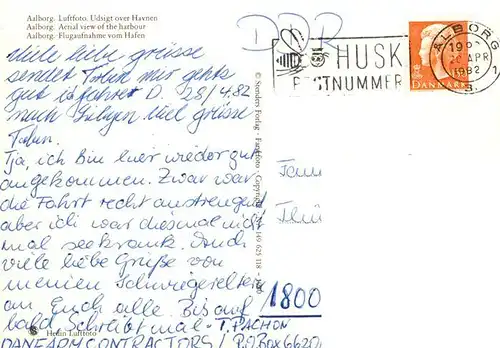 Aalborg. Luftfoto. Udsigt over Havnen
Aalborg. Aerial view of the harbour
Aalborg. Flugaufnahme vom Hafen
DDR
HUSK
POSTNUMMER
ÅLBORG
20 APR
1982
DANMARK
viele liebe grüsse
sendet Toben mir gehts
gut D. 28/4.82
nach viel grüsse
Toben.
Tja, ich bin hier wieder gut
angekommen. Zwar war
die Fahrt recht anstrengend
aber ich war diesmal nicht
mal seekrank. Auch
viele liebe Grüße von
meinen Schwiegereltern
an Euch alle. Bis auf
bald, Schreibt mal - T. PACHON
DANFARMCONTRACTORS / P.O.Box 6620
Fam
1800
© Stenders Forlag - Farvefoto - Copyright
Hedin Luftfoto